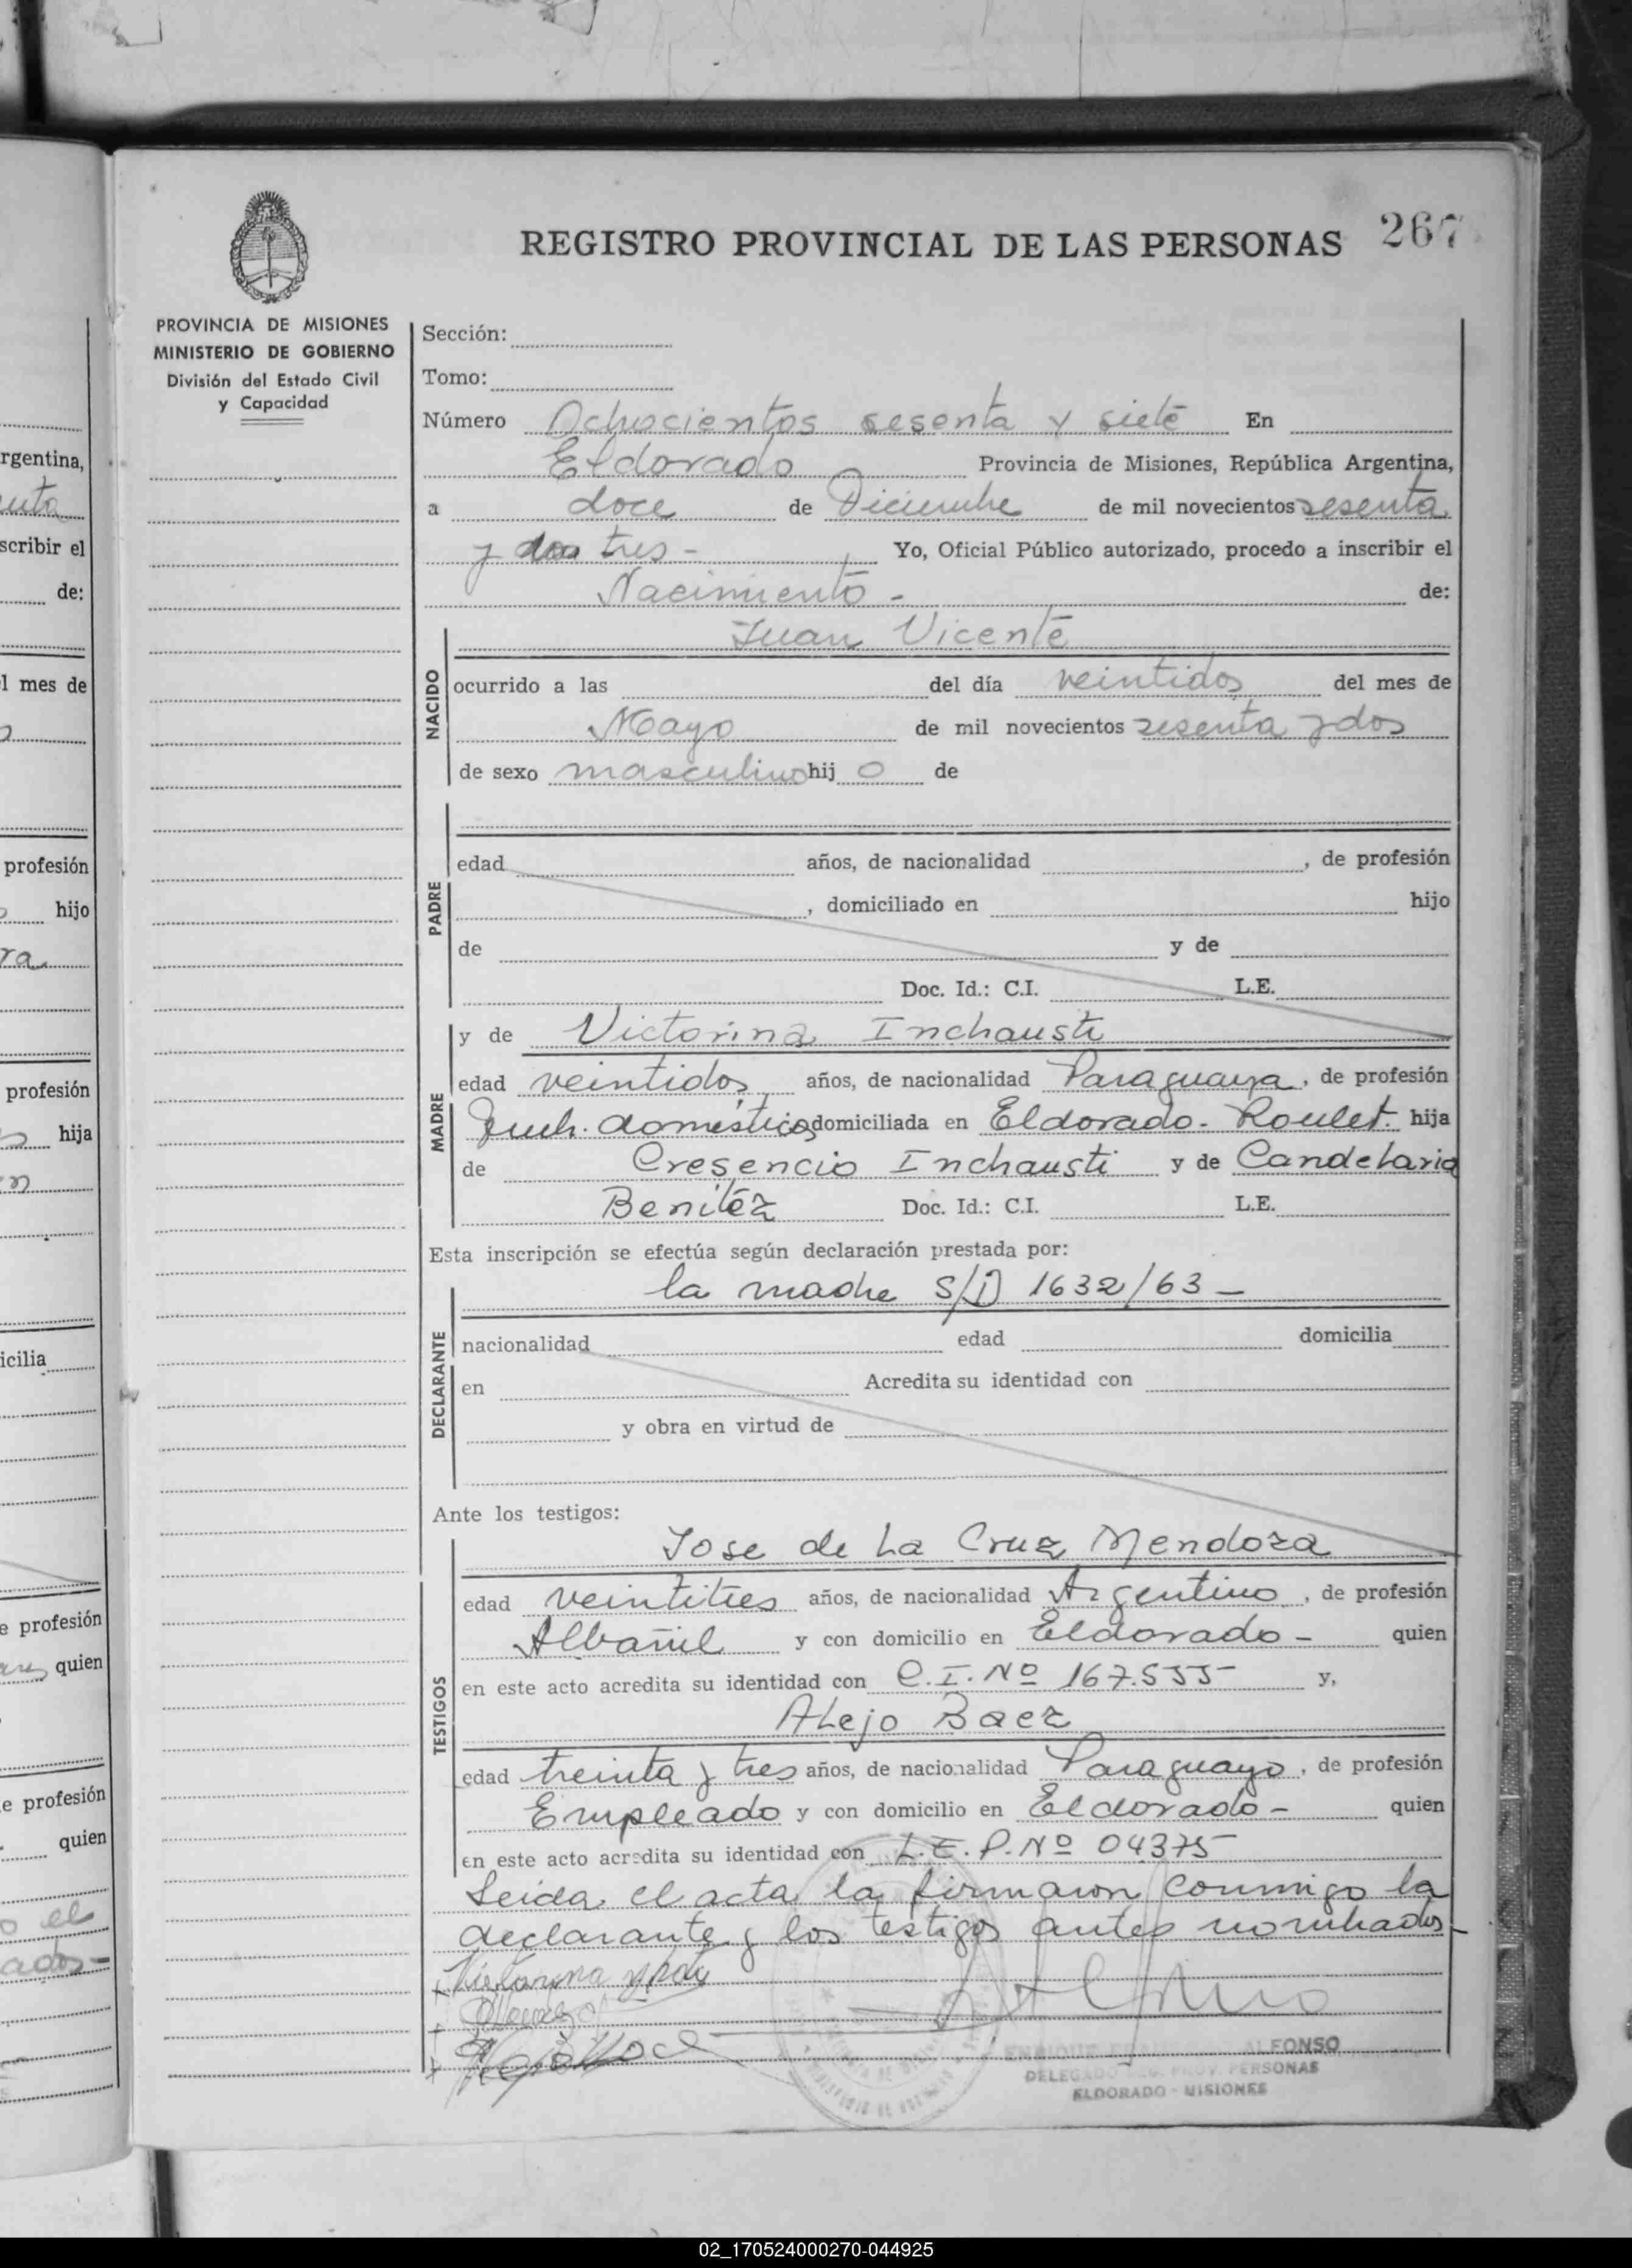 REGISTRO PROVINCIAL DE LAS PERSONAS 267
PROVINCIA DE MISIONES
MINISTERIO DE GOBIERNO
División del Estado Civil
y Capacidad
Sección:
Tomo:
Número Ochocientos sesenta y siete En
Eldorado Provincia de Misiones, República Argentina,
a doce de Diciembre de mil novecientos sesenta
y dos tres - Yo, Oficial Público autorizado, procedo a inscribir el
Nacimiento - de:
Juan Vicente
NACIDO
ocurrido a las del día veintidos del mes de
Mayo de mil novecientos sesenta y dos
de sexo masculino hij o de
PADRE
edad años, de nacionalidad , de profesión
, domiciliado en hijo
de y de
Doc. Id.: C.I. L.E.
MADRE
y de Victorina Inchausti
edad veintidos años, de nacionalidad Paraguaya, de profesión
Queh. domésticos domiciliada en Eldorado - Roulet. hija
de Cresencio Inchausti y de Candelaria
Benitéz Doc. Id.: C.I. L.E.
Esta inscripción se efectúa según declaración prestada por:
la madre S/D 1632/63 -
DECLARANTE
nacionalidad edad domicilia
en Acredita su identidad con
y obra en virtud de
Ante los testigos:
Jose de La Cruz Mendoza
TESTIGOS
edad veintitres años, de nacionalidad Argentino, de profesión
Albañil y con domicilio en Eldorado - quien
en este acto acredita su identidad con C.I. Nº 167.555 y,
Alejo Baez
edad treinta y tres años, de nacionalidad Paraguayo, de profesión
Empleado y con domicilio en Eldorado - quien
en este acto acredita su identidad con L.E.P. Nº 04375
Leida el acta la firmaron conmigo la
declarante y los testigos antes nombrados -
ALFONSO
DELEGADO REG. PROV. PERSONAS
ELDORADO - MISIONES
rgentina,
scribir el
de:
l mes de
profesión
hijo
profesión
hija
icilia
e profesión
quien
e profesión
quien
02_170524000270-044925